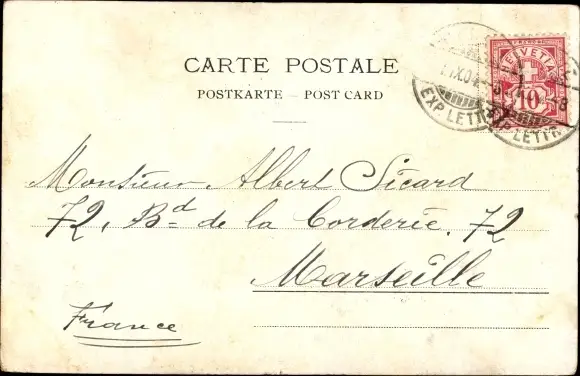 CARTE POSTALE
POSTKARTE – POST CARD
HELVETIA
10
EXP. LETTR.
EXP. LETTR.
Monsieur Albert Sicard
72, Bd de la Corderie, 72
Marseille
France